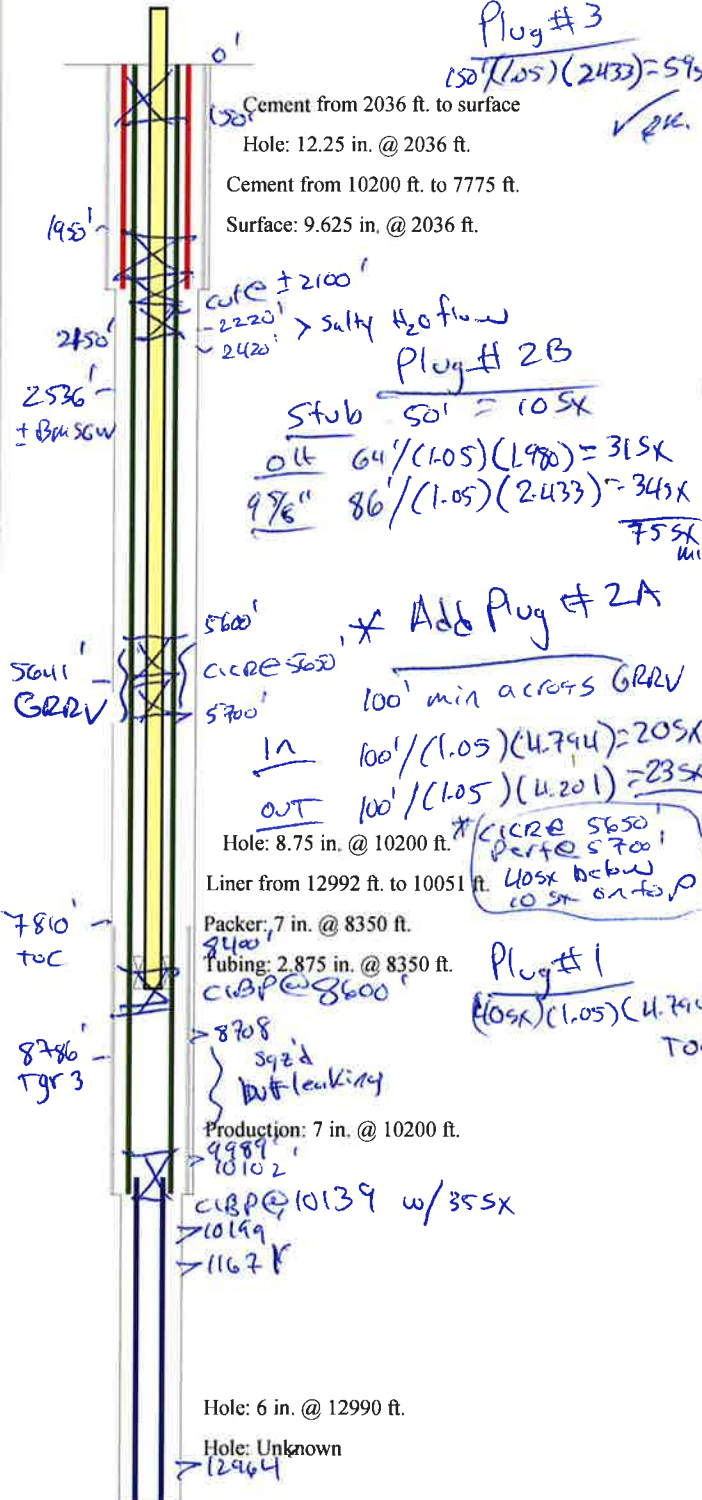 Plug # 3
150'/(1.05)(2.433)=59s
✓ OK.
0'
150'
Cement from 2036 ft. to surface
Hole: 12.25 in. @ 2036 ft.
Cement from 10200 ft. to 7775 ft.
1950'
Surface: 9.625 in. @ 2036 ft.
cut @ ±2100'
2220' > Salty H2O flow
2420'
2150'
Plug # 2B
2536'
± BMSGW
Stub 50' = 10 SX
OH 64'/(1.05)(1.980) = 31SX
9 5/8" 86'/(1.05)(2.433) = 34SX
75 SX
5600'
* Add Plug # 2A
5641'
GRRV
CICR@ 5650'
5700'
100' min across GRRV
IN 100'/(1.05)(4.794)=20SX
OUT 100'/(1.05)(4.201)=23SX
Hole: 8.75 in. @ 10200 ft.
* CICR@ 5650'
Perf@ 5700'
40SX below
10 SX on top
Liner from 12992 ft. to 10051 ft.
7810'
TOC
Packer: 7 in. @ 8350 ft.
8400'
Tubing: 2.875 in. @ 8350 ft.
CIBP@8600'
Plug # 1
(40sx)(1.05)(4.794
TOC
8708
8786'
Tgr 3
Sqz'd
but leaking
Production: 7 in. @ 10200 ft.
9989'
10102'
CIBP@ 10139 w/35SX
10199
Hole: 6 in. @ 12990 ft.
Hole: Unknown
12964